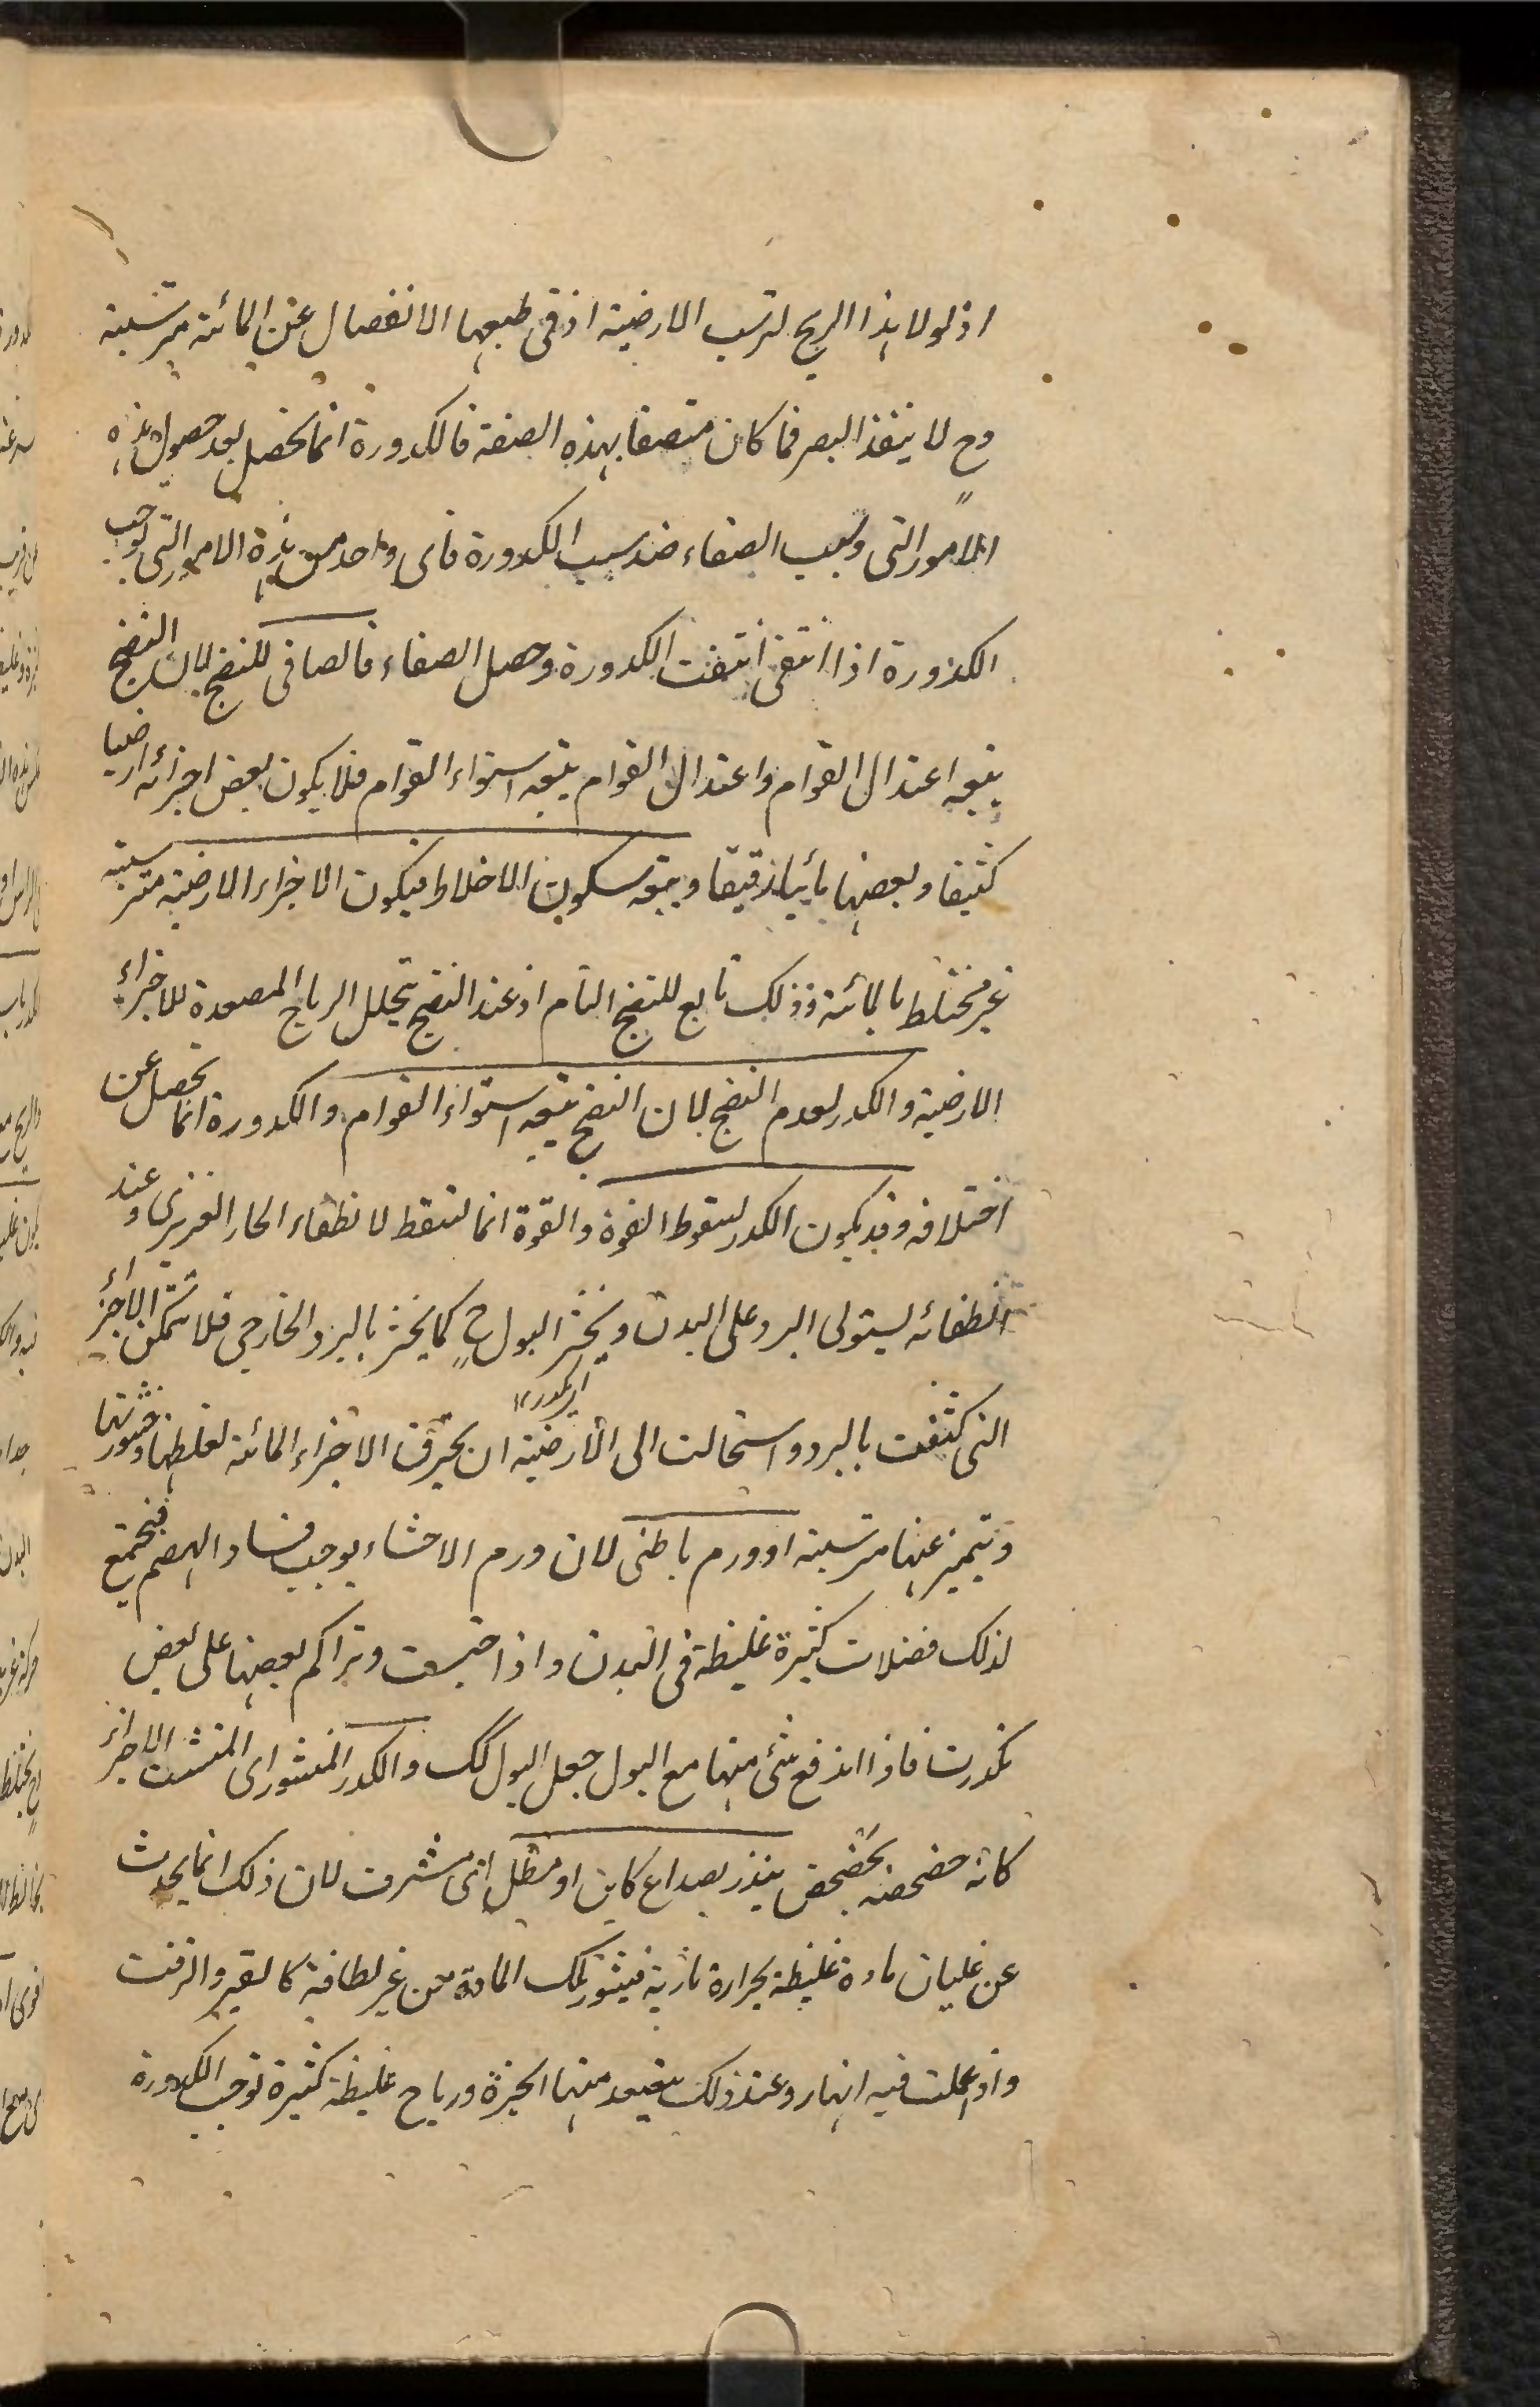 اذ لولا هذا الريح لترسب الارضية اذ فى طبعها الانفصال عن المائية مترسبة
وح لا ينفذ البصر فما كان متصفا بهذه الصفة فالكدورة انما تحصل بعد حصول هذه
الامور التى وسبب الصفاء ضد سبب الكدورة فاى واحد من هذه الامور التى توجب
الكدورة اذا انتفى انتفت الكدورة وحصل الصفاء فالصافى للنضج لان النضج
يتبعه اعتدال القوام واعتدال القوام يتبعه استواء القوام فلا يكون بعض اجزائه ارضيا
كثيفا وبعضها مائيا رقيقا ويتبعه سكون الاخلاط فيكون الاجزاء الارضية مترسبة
غير مختلط بالمائية وذلك تابع للنضج التام اذ عند النضج يتحلل الرياح المصعدة للاجزاء
الارضية والكدر لعدم النضج لان النضج يتبعه استواء القوام والكدورة انما تحصل عن
اختلافه وقد يكون الكدر لسقوط القوة والقوة انما تسقط لانطفاء الحار الغريزى وعند
انطفائه يستولى البرد على البدن ويخثر البول ح كما يخثر بالبرد الخارجى فلا تتمكن الاجزاء
التى كثفت بالبرد واستحالت الى الارضية ان يخرق الاجزاء المائية لغلظها وخثورتها
ويتميز عنها مترسبة او ورم باطنى لان ورم الاحشاء يوجب فساد الهضم فيجتمع
لذلك فضلات كثيرة غليظة فى البدن واذا احتبست وتراكم بعضها على بعض
تكدرت فاذا اندفع شئ منها مع البول جعل البول كك والكدر المنثور اى المتشتت الاجزاء
كانه خضخضه مخضخض ينذر بصداع كاين او مطل اى مشرف لان ذلك انما يحدث
عن غليان مادة غليظة بحرارة نارية فيثور تلك المادة من غير لطافة كالقير والزفت
واذا عملت فيه النار وعند ذلك يتصعد منها ابخرة ورياح غليظة كثيرة توجب الكدورة